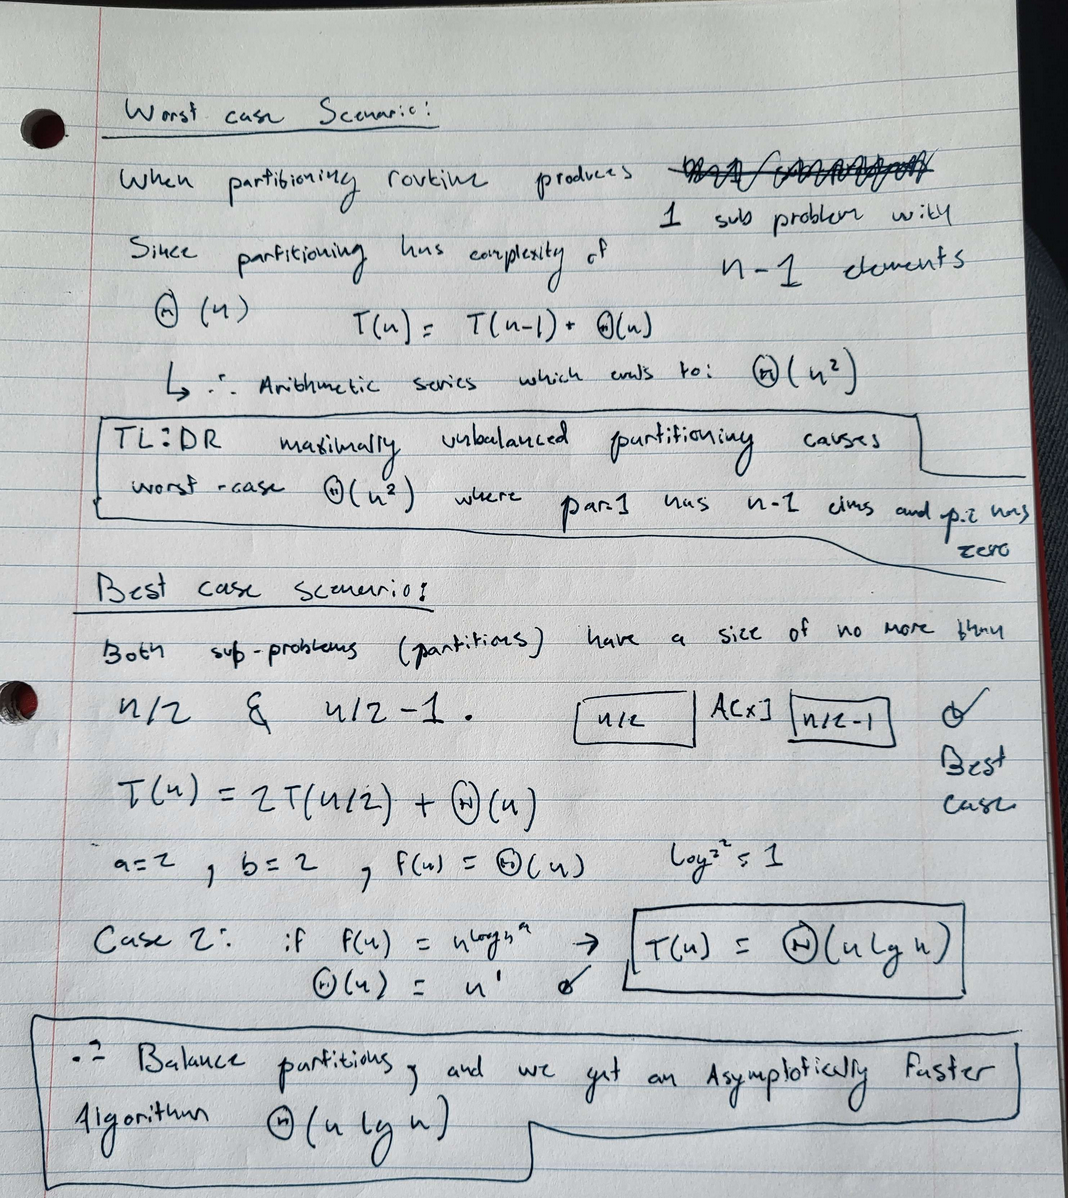 Worst case Scenario:
When partitioning routine produces
1 sub problem with
n-1 elements
Since partitioning has complexity of
Θ(n) T(n) = T(n-1) + Θ(n)
↳ ∴ Arithmetic series which evals to: Θ(n²)
TL:DR maximally unbalanced partitioning causes
worst-case Θ(n²) where par.1 has n-1 elms and p.2 has
zero
Best case scenario:
Both sub-problems (partitions) have a size of no more than
n/2 & n/2-1.
n/2 A[x] n/2-1 ✓
Best
case
T(n) = 2T(n/2) + Θ(n)
a=2 , b=2 , f(n) = Θ(n) log₂² = 1
Case 2: if f(n) = n^log_b^a → T(n) = Θ(n lg n)
Θ(n) = n¹ ✓
∴ Balance partitions, and we get an Asymptotically Faster
Algorithm Θ(n lg n)